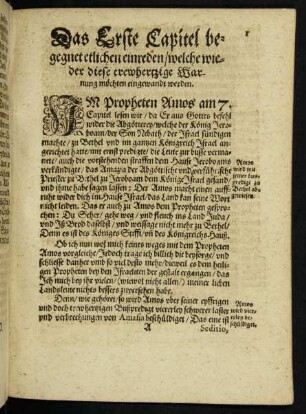 1
Das Erste Capitel be-
gegnet etlichen einreden/welche wie-
der diese trewhertzige War-
nung möchten eingewandt werden.
IM Propheten Amos am 7.
Capitel lesen wir / da Er aus Gottes befehl
wider die Abgötterey/welche der König Jero-
boam/der Son / der Israel sündigen
machte / zu Bethel und im gantzen Königreich Israel an-
gerichtet hatte/mit ernst predigte/die Leute zur busse verma-
nete/ auch die vorstehenden straffen dem Hause Jeroboams
verkündigte / das Amazia der Abgöttische und verführische
Priester zu Bethel zu Jeroboam dem Könige Israel gesand
und ihme habe sagen lassen: Der Amos macht einen auff-
ruhr wider dich im Hause Israel/das Land kan seine Wort
nicht leiden. Das er auch zu Amos dem Propheten gespro-
chen: Du Seher / gehe weg / und fleuch ins Land Juda /
und Iß Brod daselbst / und weissage nicht mehr zu Bethel/
Denn es ist des Königes Stifft / und des Königreichs Hauß.
Amos
wird mit
seiner
predigt zu
Bethel ab-
gewiesen.
Ob ich nun wol mich keines weges mit dem Propheten
Amos vorgleiche/Jedoch trage ich billich die beysorge/und
schliesse danher und so viel desto mehr/dieweil es dem heili-
gen Propheten bey den Israeliten der gestalt ergangen / das
Ich mich bey ihr vielen / (wiewol nicht allen/) meiner lieben
Landsleute nichts bessers zuversehen habe.
Denn / wie gehöret/so wird Amos uber seiner eyfferigen
und doch trewhertzigen Bußpredigt viererley schwerer laster
und verbrechungen von Amasia beschüldiget / Das eine ist
Amos
wird vier-
erley be-
schüldiget.
A
Seditio,